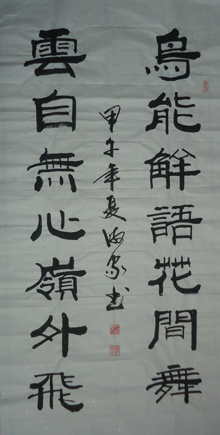 鳥能解語花間舞
雲自無心嶺外飛
甲午年夏海家書